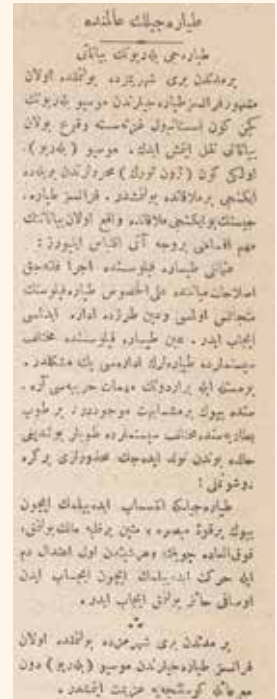 طیاره‌جیلك عالمنده
طیاره‌جی بله‌ریونك بیاناتی
بر مدتدن بری شهریمزده بولنمقده اولان
مشهور فرانسز طیاره‌جیلرندن موسیو بله‌ریونك
كچن كون استانبول غزته‌سنه وقوع بولان
بیاناتی نقل ایتمش ایدك. موسیو (بله‌ریو)،
اولكی كون (ژون تورك) محررلرندن بریله‌ده
ایكنجی بر ملاقاتده بولنمشدر. فرانسز طیاره‌
جیسنك بو ایكنجی ملاقاتده واقع اولان بیاناتنك
مهم اقسامنی بروجه آتی اقتباس ایدیورز:
عثمانلی طیاره فیلوسنده اجرا ایدیله‌جك
اصلاحات میاننده علی الخصوص طیاره فیلوسنك
متجانس اولمسی وعین طرزده اداره ایدلمسی
ایجاب ایدر. عین طیاره فیلوسنده مختلف
سیستمارده طیاره‌لرك اداره‌سی پك مشكلدر.
بو مسئله ایله بر اردونك مهمات حربیه‌سی آره‌
سنده بیوك بر مشابهت موجوددر، بر طوپ
بطاریه‌سنده مختلف سیستمارده طوپلر بولندیغی
حالده بوندن تولد ایده‌جك محذورلری بر كره
دوشونملی!
طیاره‌جیلكه انتساب ایده‌بیلمك ایچون
بیوك بر قوهٔ مبصره، متین بر قلبه مالك بولنمق،
فوق العاده چویك، وهر شیدن اول اعتدال دم
ایله حركت ایده‌بیلمك ایچون ایجاب ایدن
اوصافی حائز بولنمق ایجاب ایدر.
⁂
بر مدتدن بری شهریمزده بولنمقده اولان
فرانسز طیاره‌جیلرندن موسیو (بله‌ریو) دون
عزیمت ایتمشدر.